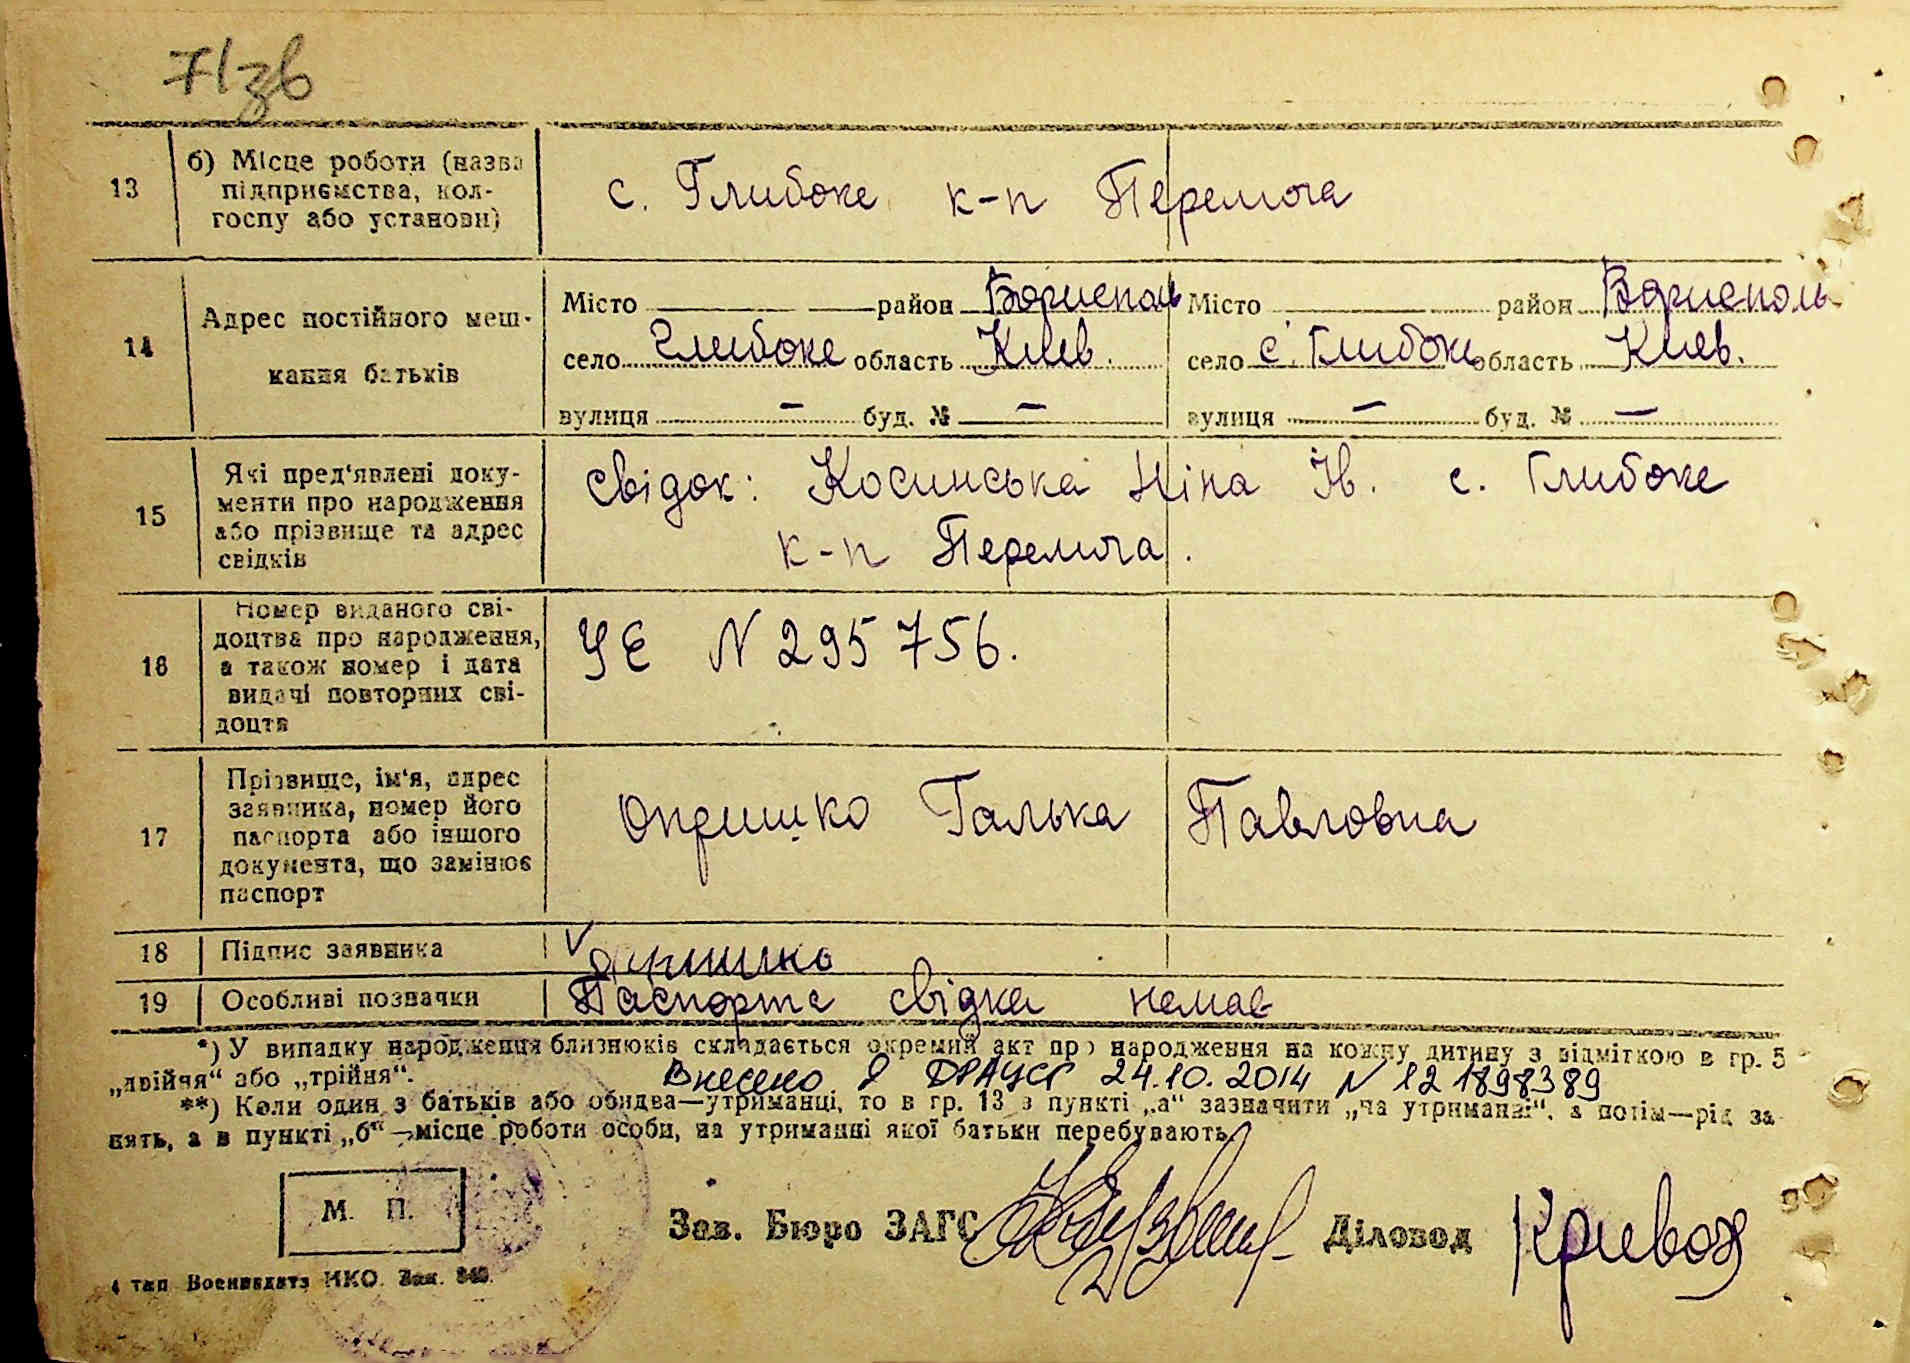 71зв
13 б) Місце роботи (назва підприємства, колгоспу або установи) с. Глибоке к-п Перемога
14 Адрес постійного мешкання батьків
Місто район Бориспол Місто район Бориспол
село Глибоке область Київ. село с. Глибоке область Київ.
вулиця – буд. № – вулиця – буд. № –
15 Які пред'явлені документи про народження або прізвище та адрес свідків
свідок: Косинська Ніна Н. с. Глибоке
к-п Перемога.
16 Номер виданого свідоцтва про народження, а також номер і дата видачі повторних свідоцтв
УЕ N 295756.
17 Прізвище, ім'я, адрес заявника, номер його паспорта або іншого документа, що замінює паспорт
Опришко Галька Павловна
18 Підпис заявника Опришко
19 Особливі позначки Паспорта свідка немає
*) У випадку народження близнюків складається окремий акт про народження на кожну дитину з відміткою в гр. 5
„двійня“ або „трійня“.
Внесено в ДРАЦСГ 24.10.2014 N 12 1898389
**) Коли один з батьків або обидва—утриманці, то в гр. 13 в пункті „а“ зазначити „на утриманні“, а потім—рід за-
нять, а в пункті „б“—місце роботи особи, на утриманні якої батьки перебувають.
М. П.
Зав. Бюро ЗАГС Діловод Кривов
4 тип Воениздата НКО. Зак. 840.